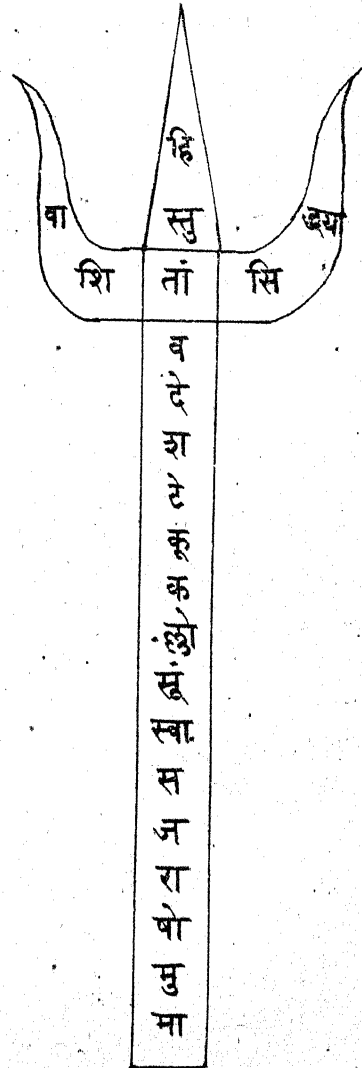 हि
वा स्तु द्धया
शि तां सि
व
दे
श
टे
कू
क
स्वा
स
ज
रा
षो
मु
मा